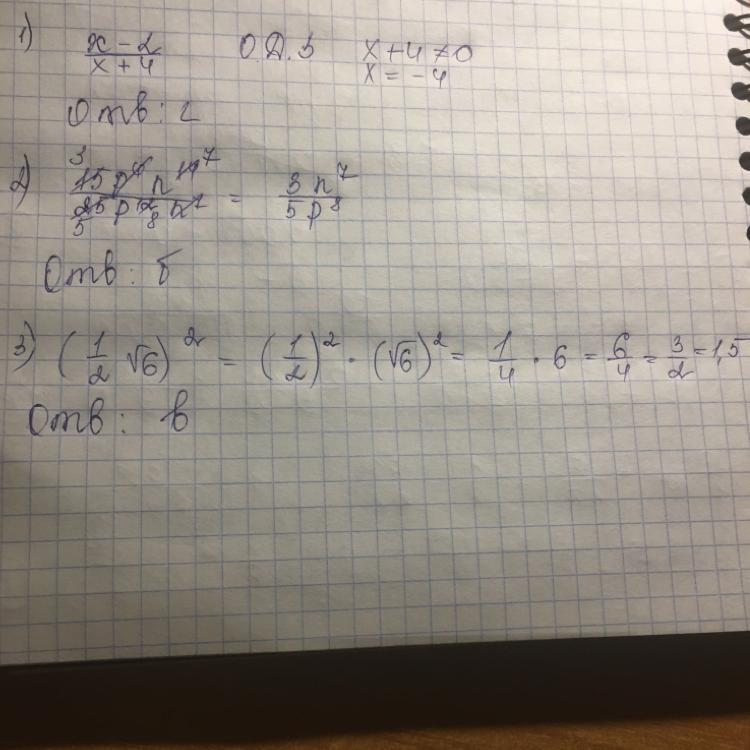 1) x - 2 / x + 4 О.Д.З x + 4 ≠ 0
x = - 4
Отв: г
2) 15 p⁴ n / 25 p n = 3 n⁷ / 5 p⁸
Отв: б
3) (1/2 √6)² = (1/2)² · (√6)² = 1/4 · 6 = 6/4 = 3/2 = 1,5
Отв: в